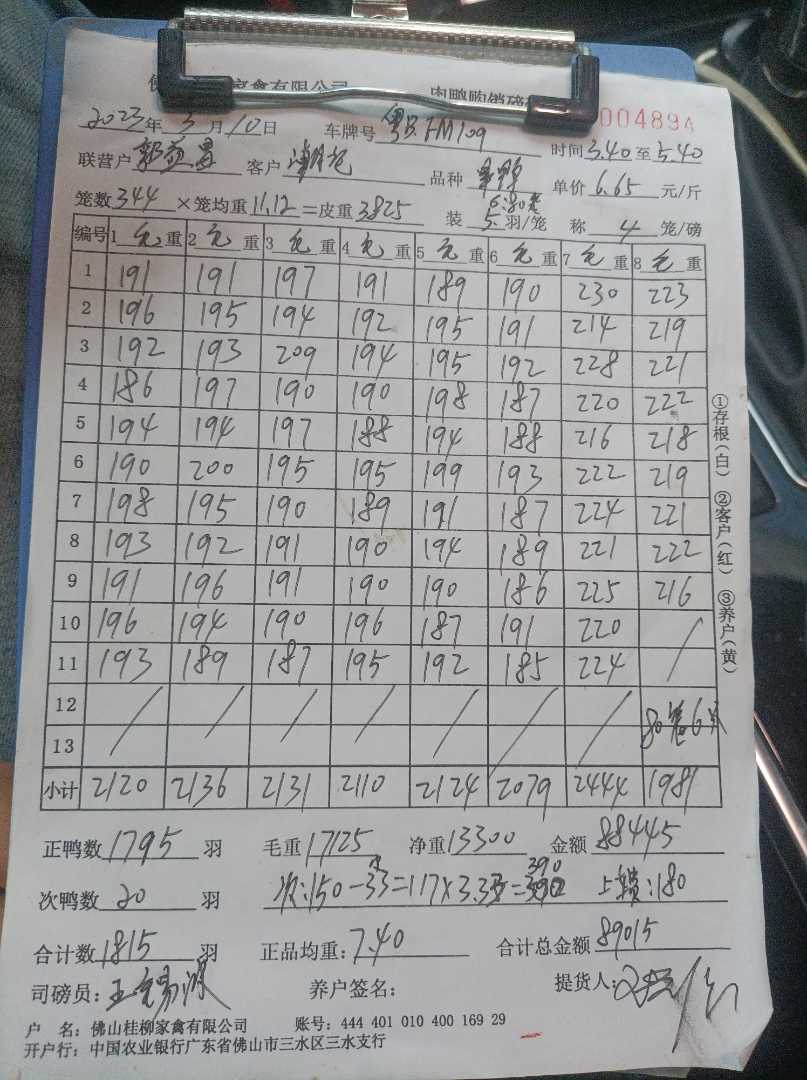 家禽有限公司 肉鸭购销磅
00489A
2023年3月10日 车牌号 粤B.FM109 时间 3.40至5.40
联营户 客户 品种 单价 6.65 元/斤
笼数 344 ×笼均重 11.12 =皮重 3825 装 5 羽/笼 称 4 笼/磅
编号 1 毛重 2 毛重 3 毛重 4 毛重 5 毛重 6 毛重 7 毛重 8 毛重
1 191 191 197 191 189 190 230 223
2 196 195 194 192 195 191 214 219
3 192 193 209 194 195 192 228 221
4 186 197 190 190 198 187 220 222
5 194 194 197 188 194 188 216 218
6 190 200 195 195 199 193 222 219
7 198 195 190 189 191 187 224 221
8 193 192 191 190 194 189 221 222
9 191 196 191 190 190 186 225 216
10 196 194 190 196 187 191 220 /
11 193 189 187 195 192 185 224
12 / / / / / / / 80笼6只
13
小计 2120 2136 2131 2110 2124 2079 2444 1981
正鸭数 1795 羽 毛重 17125 净重 13300 金额 88445
次鸭数 20 羽 次:150-33=117×3.3=390 上赞:180
合计数 1815 羽 正品均重:7.40 合计总金额 89015
司磅员: 养户签名: 提货人:
户 名:佛山桂柳家禽有限公司 账号:444 401 010 400 169 29
开户行:中国农业银行广东省佛山市三水区三水支行
①存根(白) ②客户(红) ③养户(黄)